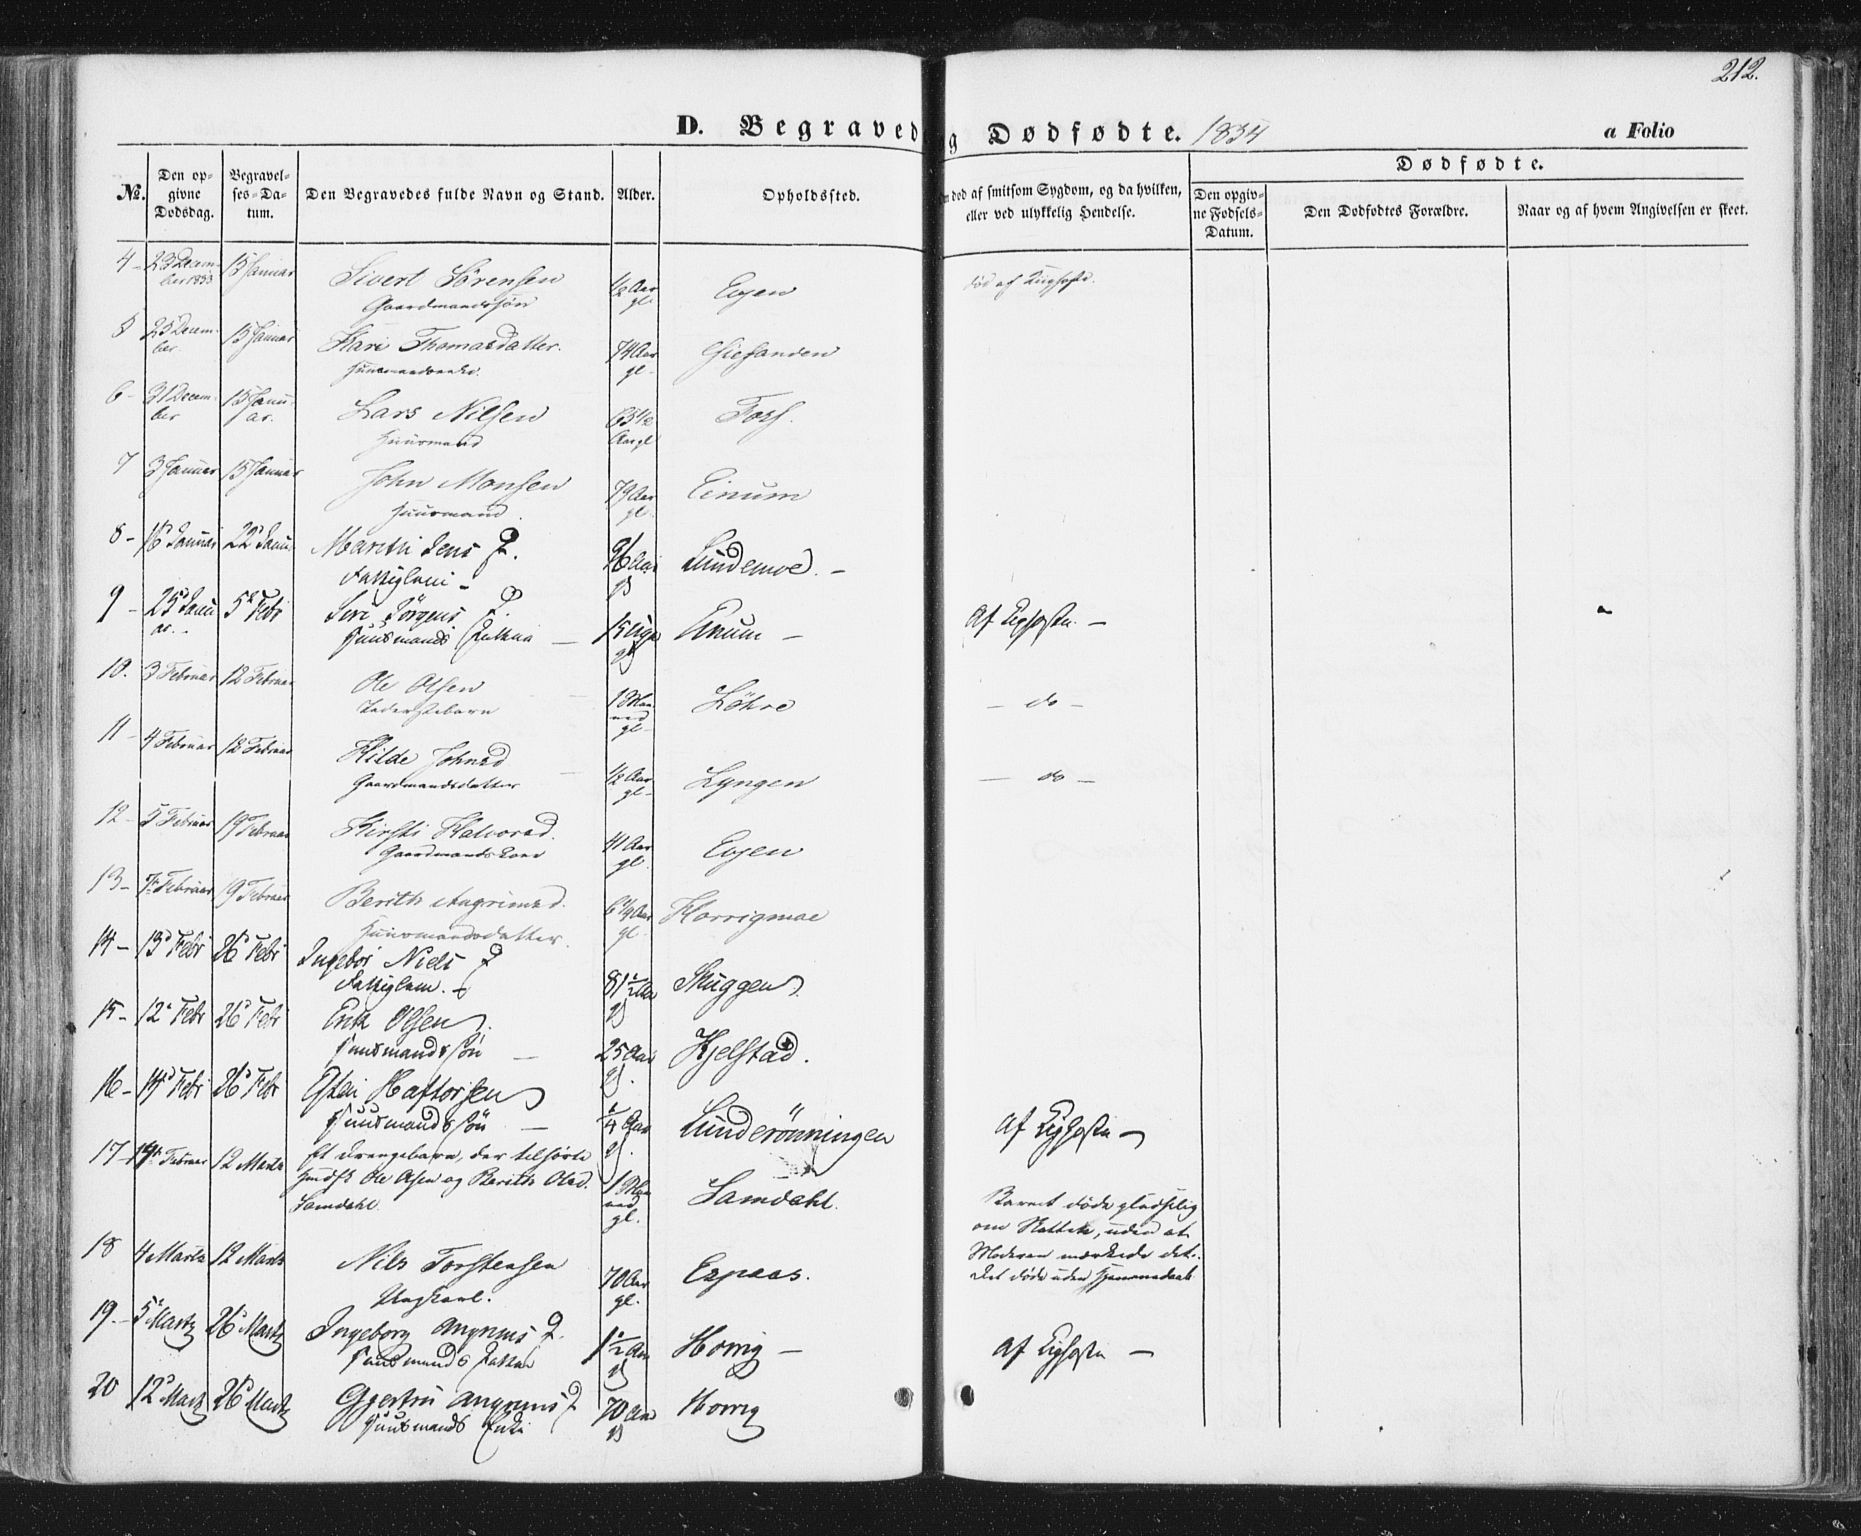 212.
D. Begravede og Dødfødte. 1834 a Folio
Dødfødte.
No. Den opgivne Dødsdag. Begravelses-Datum. Den Begravedes fulde Navn og Stand. Alder. Opholdssted. død af smitsom Sygdom, og da hvilken, eller ved ulykkelig Hendelse. Den opgivne Fødsels-Datum. Den Dødfødtes Forældre. Naar og af hvem Angivelsen er skeet.
4 - 23 December 1833 15 Januar Sivert Sörensen ½ Aar gl. Eggen død af Kighoste.
Gaardmandssön
5 25 December 15 Januar Kari Thomasdatter. 74 Aar gl.
Huusmandsenke.
6 - 31 December 15 Januar. Lars Nilsen 63½ Aar gl Foss.
Huusmand
7 3 Januar 15 Januar John Monsen 79 Aar gl. Einum
Huusmand.
8 - 16 Januar 22 Janu. Marith Jens D. 96 Aar gl Lundemoe. -
Fattiglem -
9 - 25 Januar. 5 Febr Siri Jörgens D. 15 Uger gl Einum - Af Kighoste. -
Huusmands Datter -
10. 3 Februar 12 Februar Ole Olsen 1 Maaned gl. Löhre - do -
11 - 4 Februar 12 Februar Kilde Johnsd ½ Aar gl. Lyngen - do -
Gaardmandsdatter
12 - 5 Februar 19 Februar Kirsti Halvorsd. 41 Aar gl. Eggen
Gaardmandskone
13 - 7 Februar 19 Februar Berith Angrimsd. 6¼ Aar gl. Horrigmoe
Huusmandsdatter.
14 - 13 Febr 26 Febr Ingebor Niels D 81½ Aar gl Skuggen.
Fattiglem. -
15 - 12 Febr 26 Febr Erik Olsen. 25 Aar gl. Kjelstad.
Huusmands Sön -
16 - 14 Febr 26 Febr Esten Haftorsen ¼ Aar gl. Lunderönningen af Kighoste -
Huusmands Sön -
17 - 14 Februar 12 Marts Et Drengebarn, der tilhörte 1 Maaned gl. Samdahl. Barnet döde pludselig
Ole Olsen og Berith Olsd. om Natten, uden at
Samdahl. Moderen mærkede det.
Det döde uden Hjemmedaab
18 4 Marts 12 Marts Nils Torstensen 70 Aar gl. Espaas.
Ungkarl.
19. - 5 Martz 26 Martz Ingeborg Angrims D. 1½ Aar gl Horrig - af Kighoste -
Huusmands Datter
20 12 Martz 26 Martz Gjertru Angrims D 70 Aar gl Horrig
Huusmands Enke